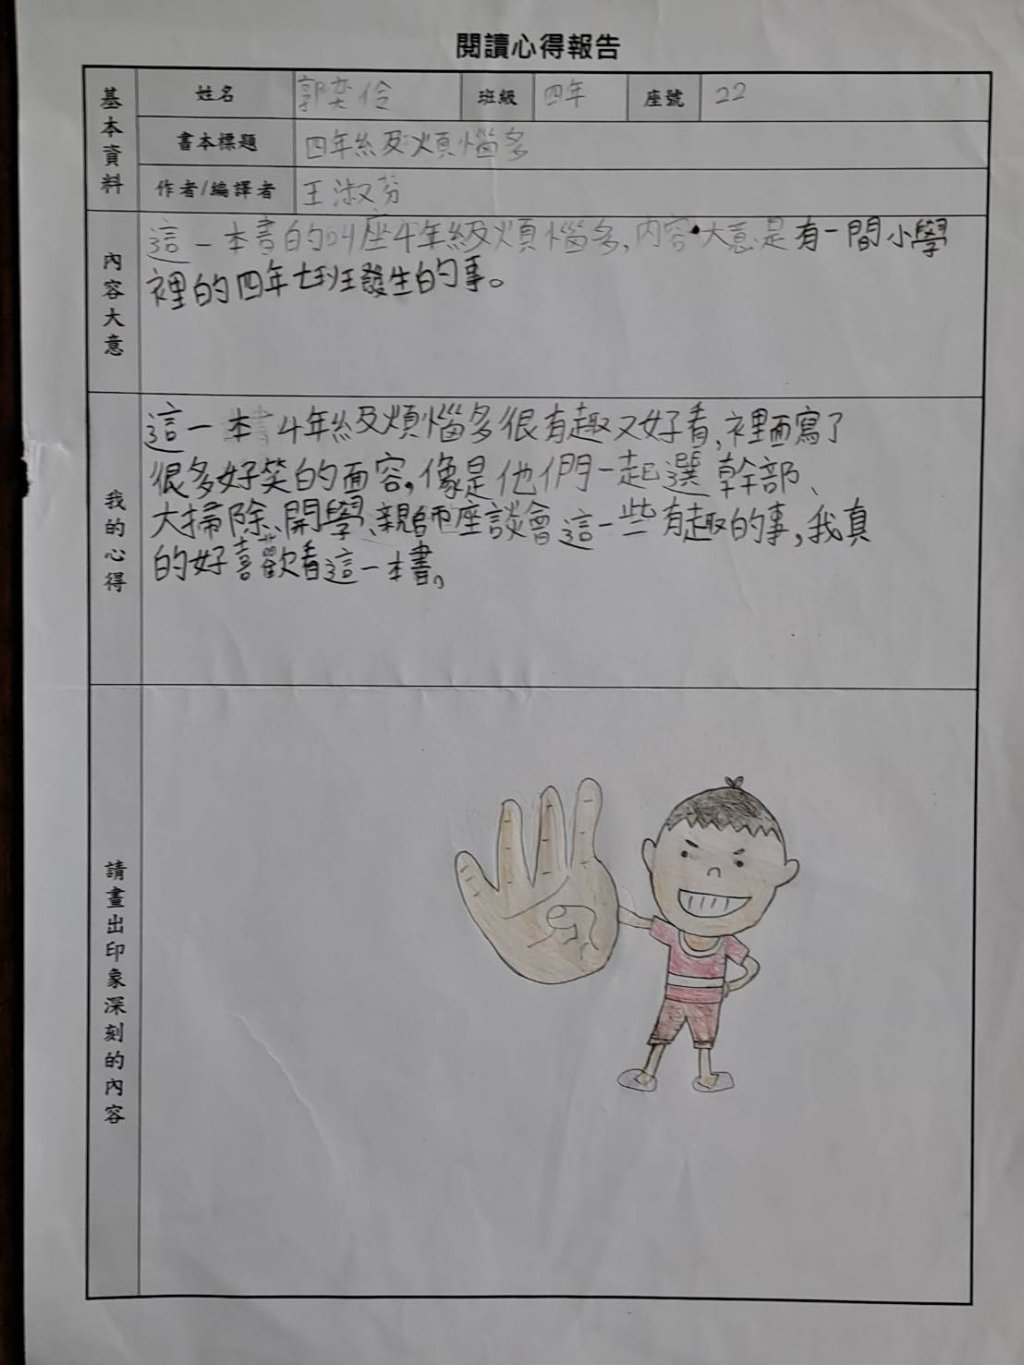 閱讀心得報告
基本資料
姓名 郭奕伶 班級 四年 座號 22
書本標題 四年級煩惱多
作者/編譯者 王淑芬
內容大意
這一本書的叫座4年級煩惱多,內容大意是有一間小學
裡的四年七班發生的事。
我的心得
這一本書4年級煩惱多很有趣又好看,裡面寫了
很多好笑的面容,像是他們一起選幹部、
大掃除、開學、親師座談會這一些有趣的事,我真
的好喜歡看這一本書。
請畫出印象深刻的內容